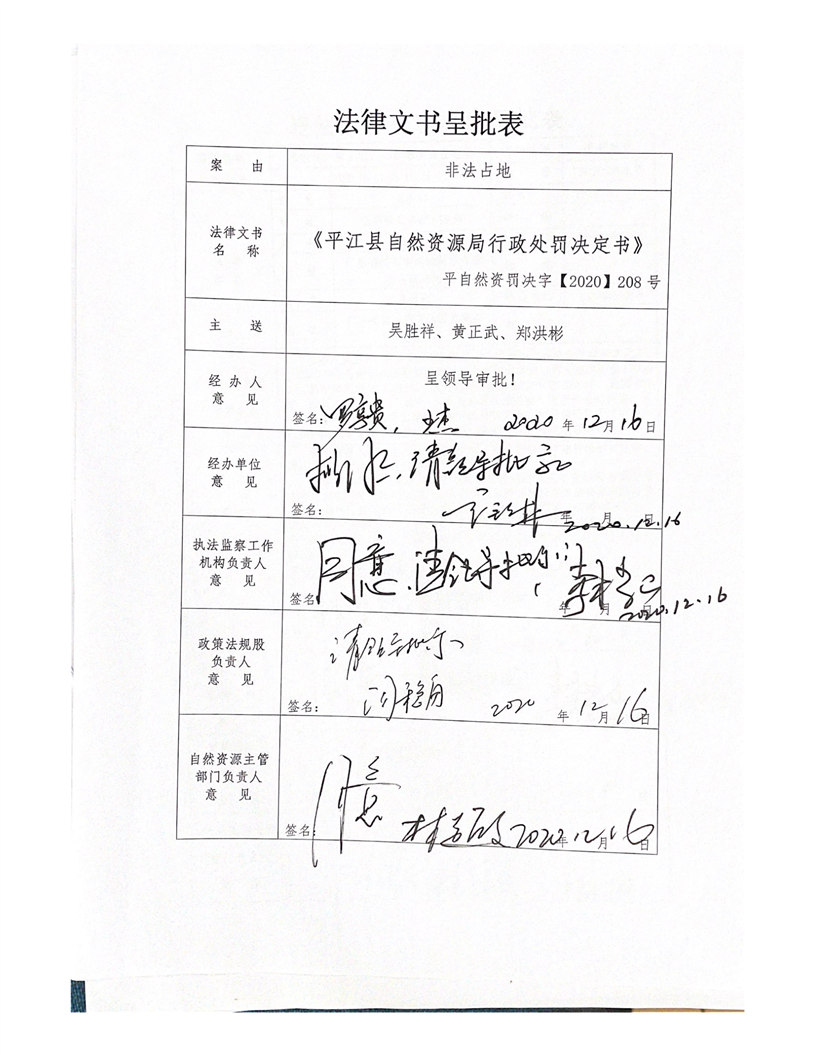 法律文书呈批表
案 由
非法占地
法律文书
名 称
《平江县自然资源局行政处罚决定书》
平自然资罚决字【2020】208 号
主 送
吴胜祥、黄正武、郑洪彬
经 办 人
意 见
呈领导审批!
签名: 2020 年 12 月 16 日
经办单位
意 见
请领导批示
签名: 年 月 2020.12.16
执法监察工作
机构负责人
意 见
同意,请领导批示
签名 年 月 日 2020.12.16
政策法规股
负责人
意 见
请领导批示
签名: 2020 年 12 月 16 日
自然资源主管
部门负责人
意 见
同意
签名: 2020 年 12 月 16 日